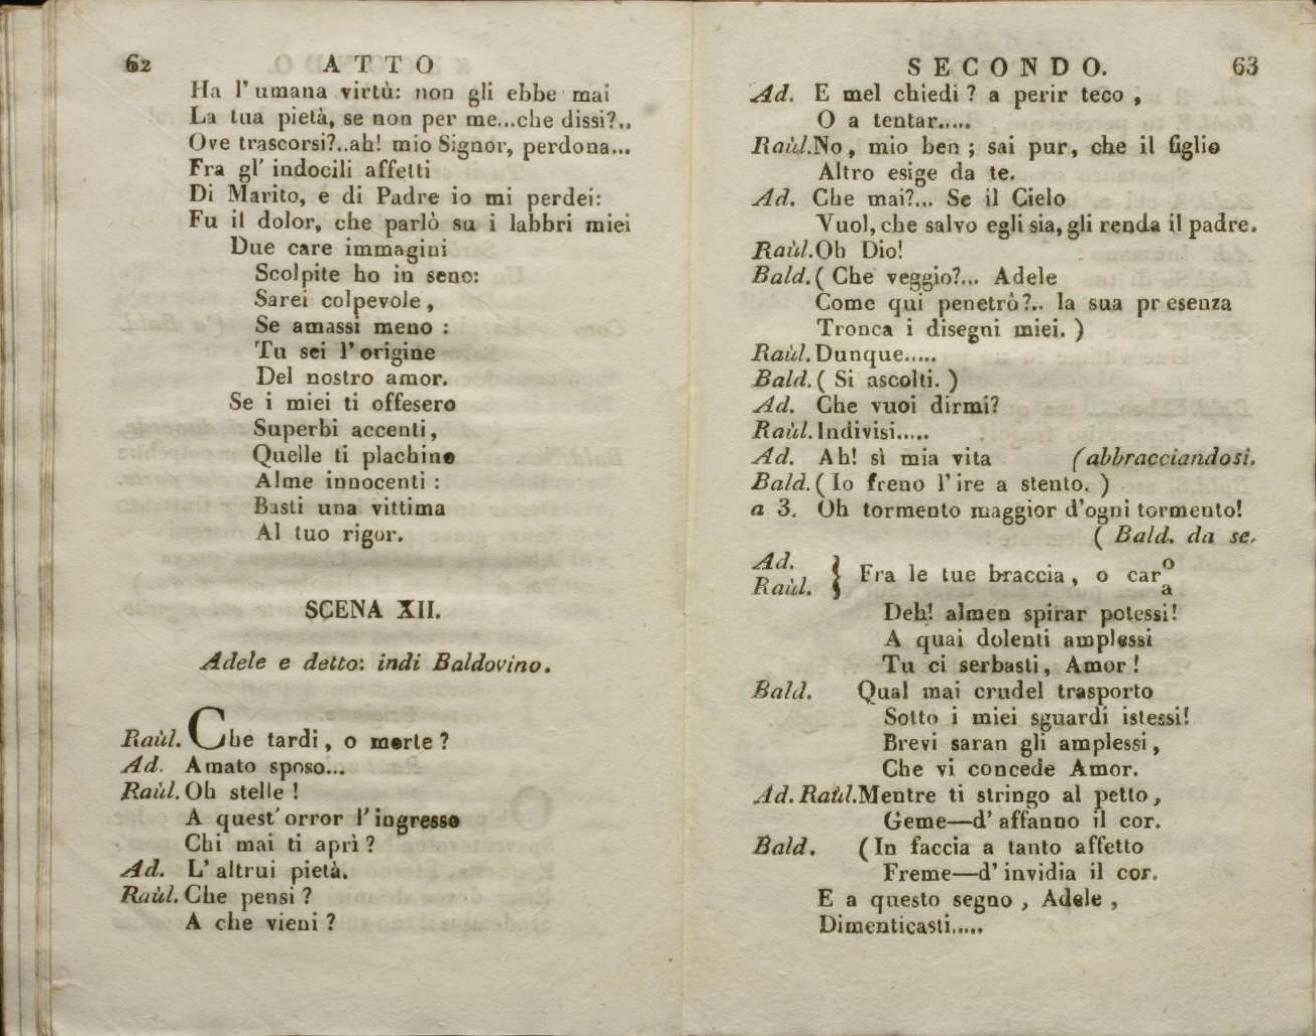 62 ATTO
Ha l'umana virtù: non gli ebbe mai
La tua pietà, se non per me...che dissi?..
Ove trascorsi?..ah! mio Signor, perdona...
Fra gl' indocili affetti
Di Marito, e di Padre io mi perdei:
Fu il dolor, che parlò su i labbri miei
Due care immagini
Scolpite ho in seno:
Sarei colpevole,
Se amassi meno :
Tu sei l'origine
Del nostro amor.
Se i miei ti offesero
Superbi accenti,
Quelle ti plachino
Alme innocenti :
Basti una vittima
Al tuo rigor.
SCENA XII.
Adele e detto: indi Baldovino.
Raùl. Che tardi, o morte?
Ad. Amato sposo...
Raùl. Oh stelle!
A quest' orror l'ingresso
Chi mai ti aprì?
Ad. L'altrui pietà.
Raùl. Che pensi?
A che vieni?
SECONDO. 63
Ad. E mel chiedi? a perir teco,
O a tentar.....
Raùl. No, mio ben; sai pur, che il figlio
Altro esige da te.
Ad. Che mai?... Se il Cielo
Vuol, che salvo egli sia, gli renda il padre.
Raùl. Oh Dio!
Bald. ( Che veggio?... Adele
Come qui penetrò?.. la sua presenza
Tronca i disegni miei. )
Raùl. Dunque.....
Bald. ( Si ascolti. )
Ad. Che vuoi dirmi?
Raùl. Indivisi.....
Ad. Ah! sì mia vita (abbracciandosi.
Bald. ( Io freno l'ire a stento. )
a 3. Oh tormento maggior d'ogni tormento!
( Bald. da se.
Ad.
Raùl. } Fra le tue braccia, o car o a
Deh! almen spirar potessi!
A quai dolenti amplessi
Tu ci serbasti, Amor!
Bald. Qual mai crudel trasporto
Sotto i miei sguardi istessi!
Brevi saran gli amplessi,
Che vi concede Amor.
Ad. Raùl. Mentre ti stringo al petto,
Geme—d'affanno il cor.
Bald. (In faccia a tanto affetto
Freme—d'invidia il cor.
E a questo segno, Adele,
Dimenticasti.....